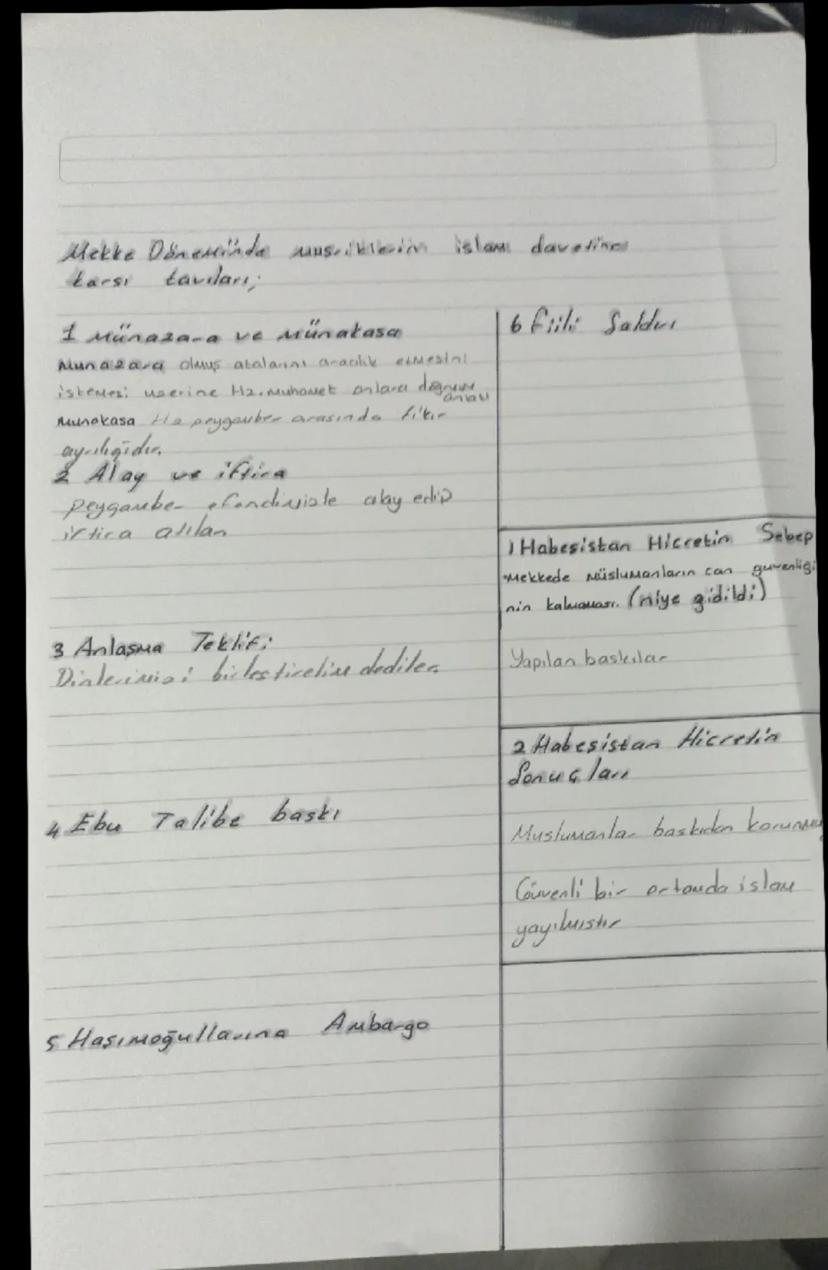 Mekke Döneminde müsriklerin islam davetine
karsı tavıları;
1 Münazara ve Münakasa
Munazara olmuş atalarını aracılık etmesini
istemesi uzerine Hz. Muhamet onlara doğrusu
anlatı
Munakasa Hz peygamber arasında fikir
ayrılığıdır.
2 Alay ve iftira
peygamber efendimizle alay edip
iftira atılan
3 Anlaşma Teklifi
Dinlerimizi birlestirelim dediler
4 Ebu Talibe baskı
5 Haşımoğullarına Ambargo
6 Fiili Saldırı
1 Habesistan Hicretin Sebep
Mekkede müslumanların can guvenliği
nin kalmaması. (niye gidildi)
Yapılan baskılar
2 Habesistan Hicretin
Sonuçları
Muslumanlar baskıdan korunmu
Güvenli bir ortamda islam
yayılmıstır